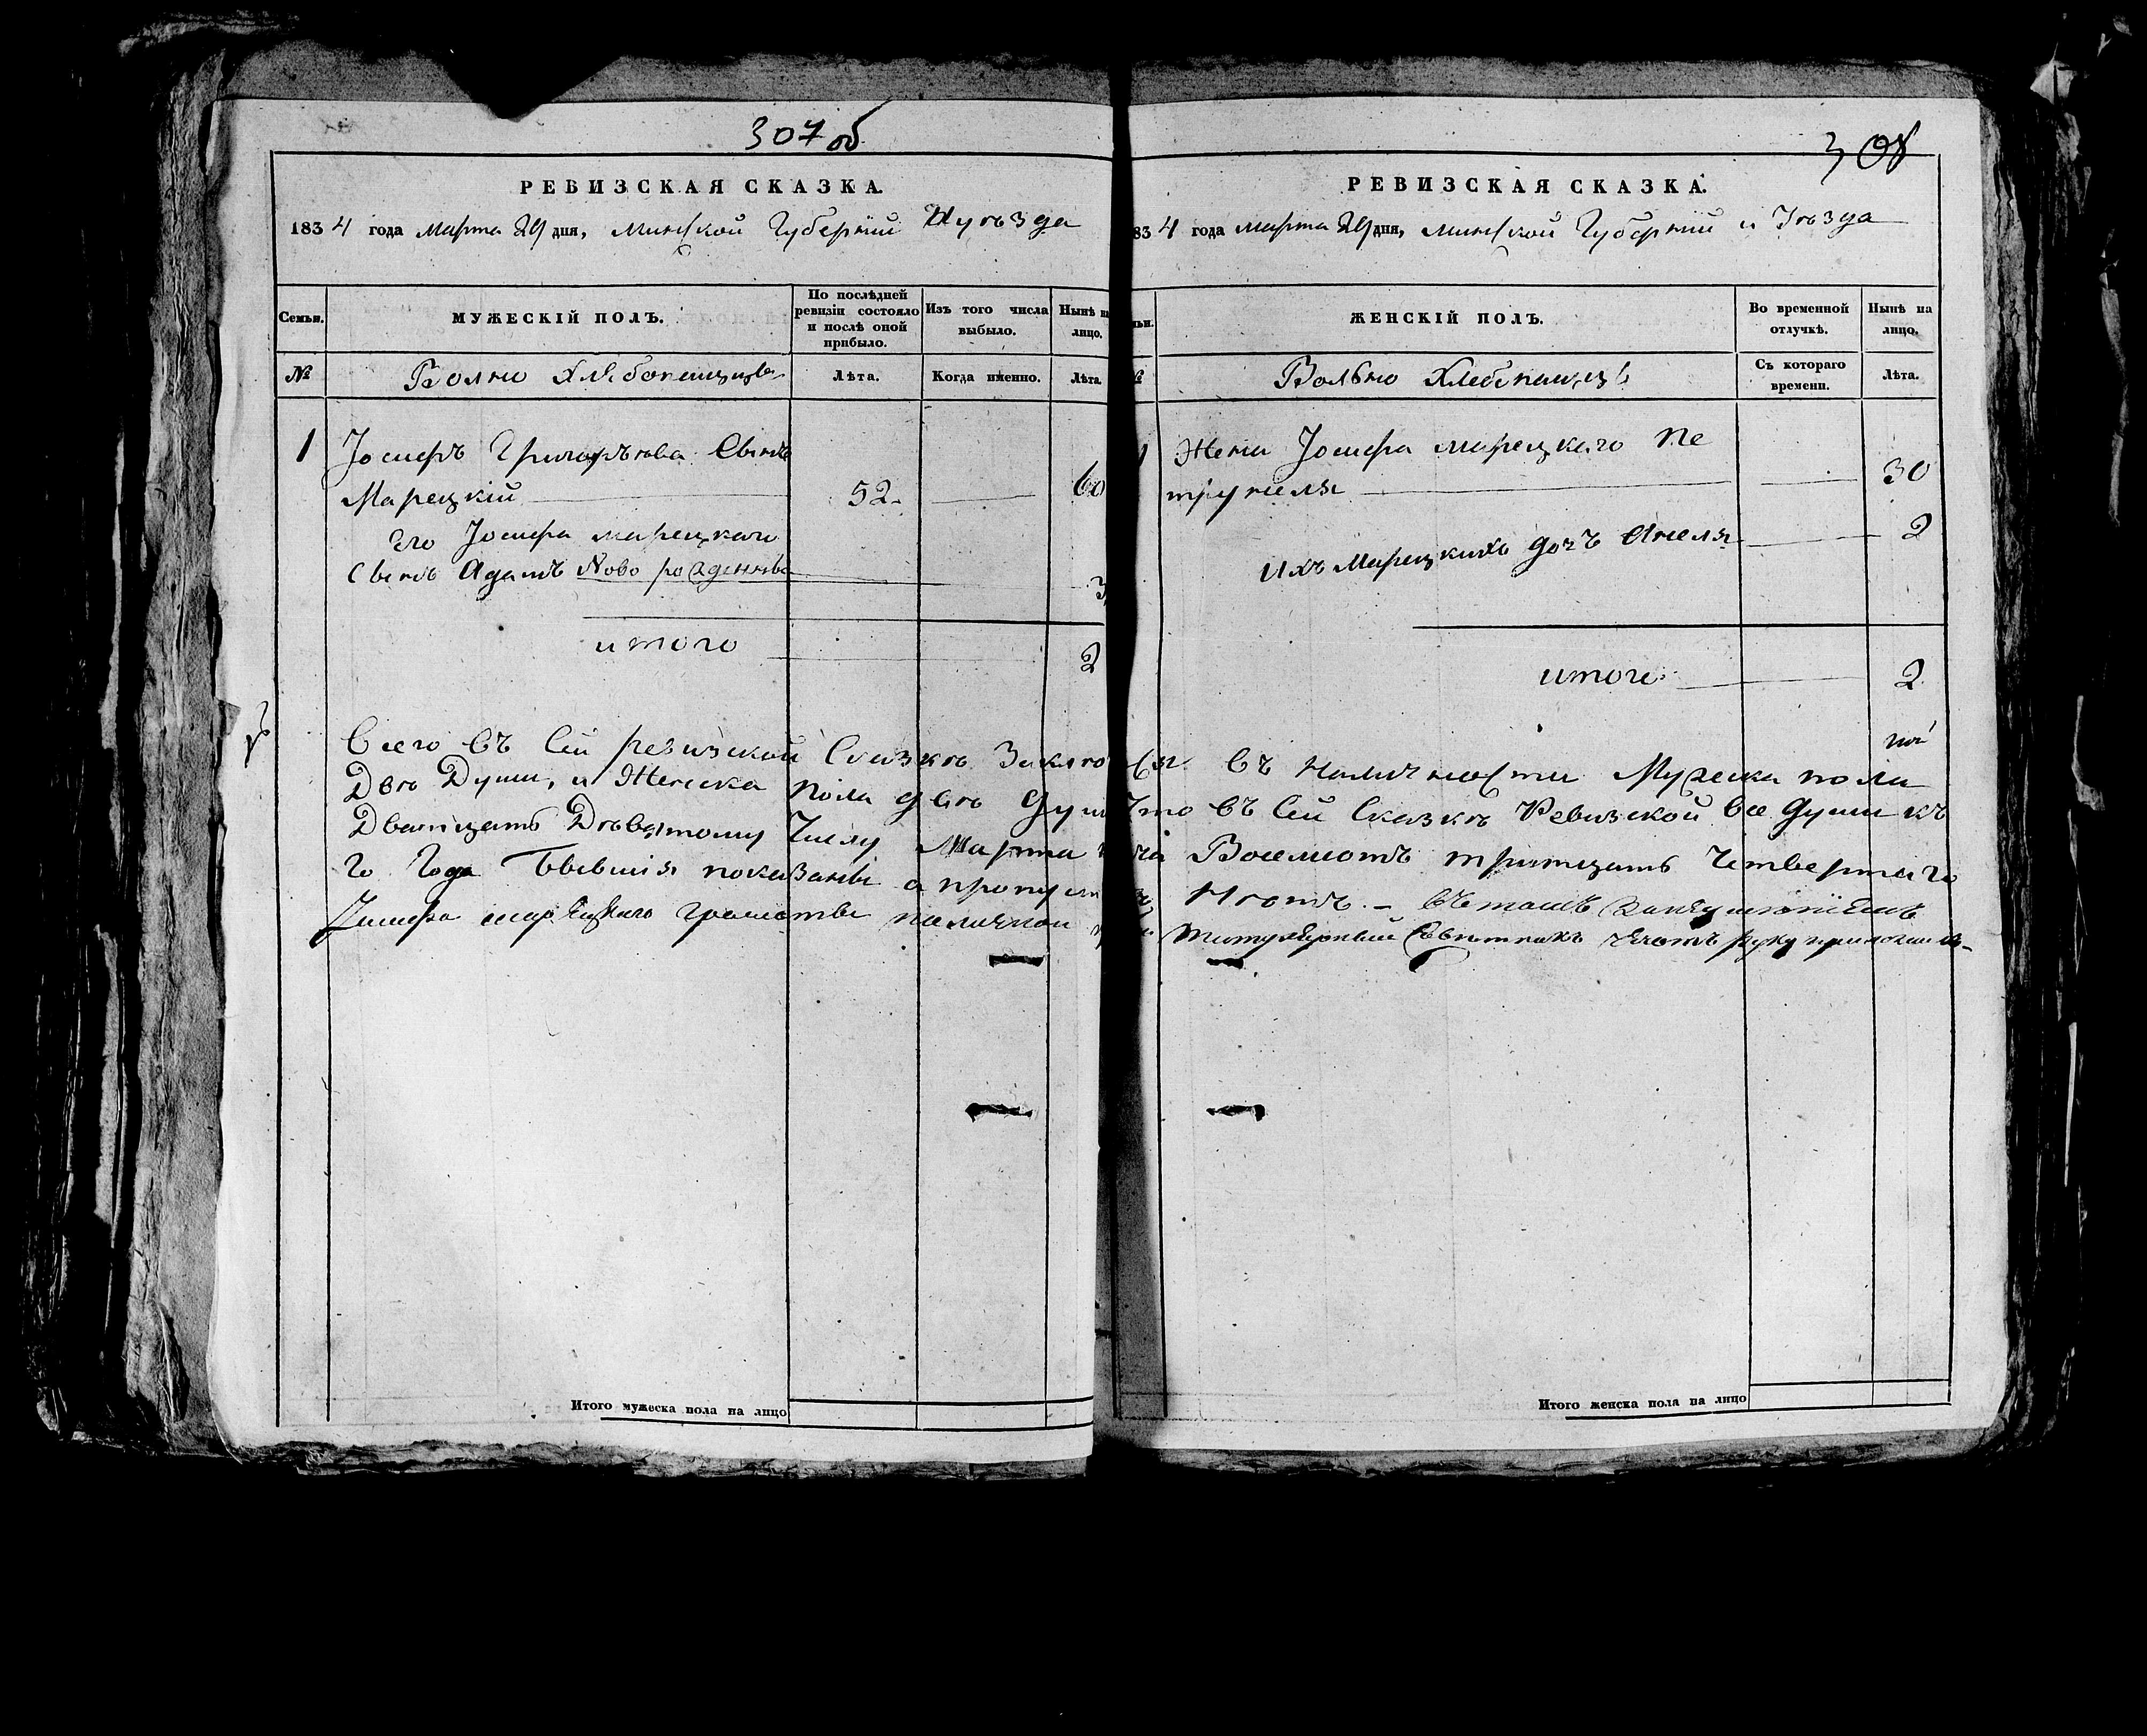 307 об
РЕВИЗСКАЯ СКАЗКА.
1834 года Марта 29 дня, Минской Губерніи И уѣзда
Семьи.
МУЖЕСКІЙ ПОЛЪ.
По послѣдней ревизіи состояло и послѣ оной прибыло.
Изъ того числа выбыло.
Нынѣ на лицо.
№
Волно Хлебопашцы
Лѣта.
Когда именно.
Лѣта.
1 Іосифъ Григорьева Сынъ
Марецкій 52 60
Его Іосифа Марецкаго
Сынъ Адамъ Ново рожденны 3
итого 2
Всего въ Сей ревизской Сказкѣ Заклю
Двѣ Души, и Женска пола двѣ Душ
Дватцать Девятому Числу Марта
го Года бывшія показаны а пропущ
Марецкаго
Итого мужеска пола на лицо
308
РЕВИЗСКАЯ СКАЗКА.
834 года Марта 29 дня, Минской Губерніи и Уѣзда
ЖЕНСКІЙ ПОЛЪ.
Во временной отлучкѣ.
Нынѣ на лицо.
Вольно Хлебопашцы
Съ котораго времени.
Лѣта.
Лѣта.
1 Жена Іосифа Марецкаго Пе
трунеля 30
Ихъ Марецкихъ дочъ Анеля 2
итого 2
ся въ наличности Мужска пола
что въ Сей Сказкѣ Ревизской все души къ
Восемсотъ тритцать Четвертаго
Нѣтъ. – въ томъ
Титулярный Совѣтникъ руку приложилъ
Итого женска пола на лицо